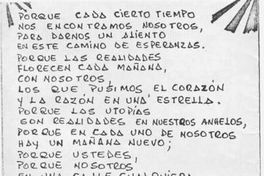 PORQUE CADA CIERTO TIEMPO
NOS ENCONTRAMOS NOSOTROS,
PARA DARNOS UN ALIENTO
EN ESTE CAMINO DE ESPERANZAS.
PORQUE LAS REALIDADES
FLORECEN CADA MAÑANA,
CON NOSOTROS,
LOS QUE PUSIMOS EL CORAZÓN
Y LA RAZÓN EN UNA ESTRELLA.
PORQUE LAS UTOPÍAS
SON REALIDADES EN NUESTROS ANHELOS,
PORQUE EN CADA UNO DE NOSOTROS
HAY UN MAÑANA NUEVO;
PORQUE USTEDES,
PORQUE NOSOTROS
EN UNA CALLE CUALQUIERA